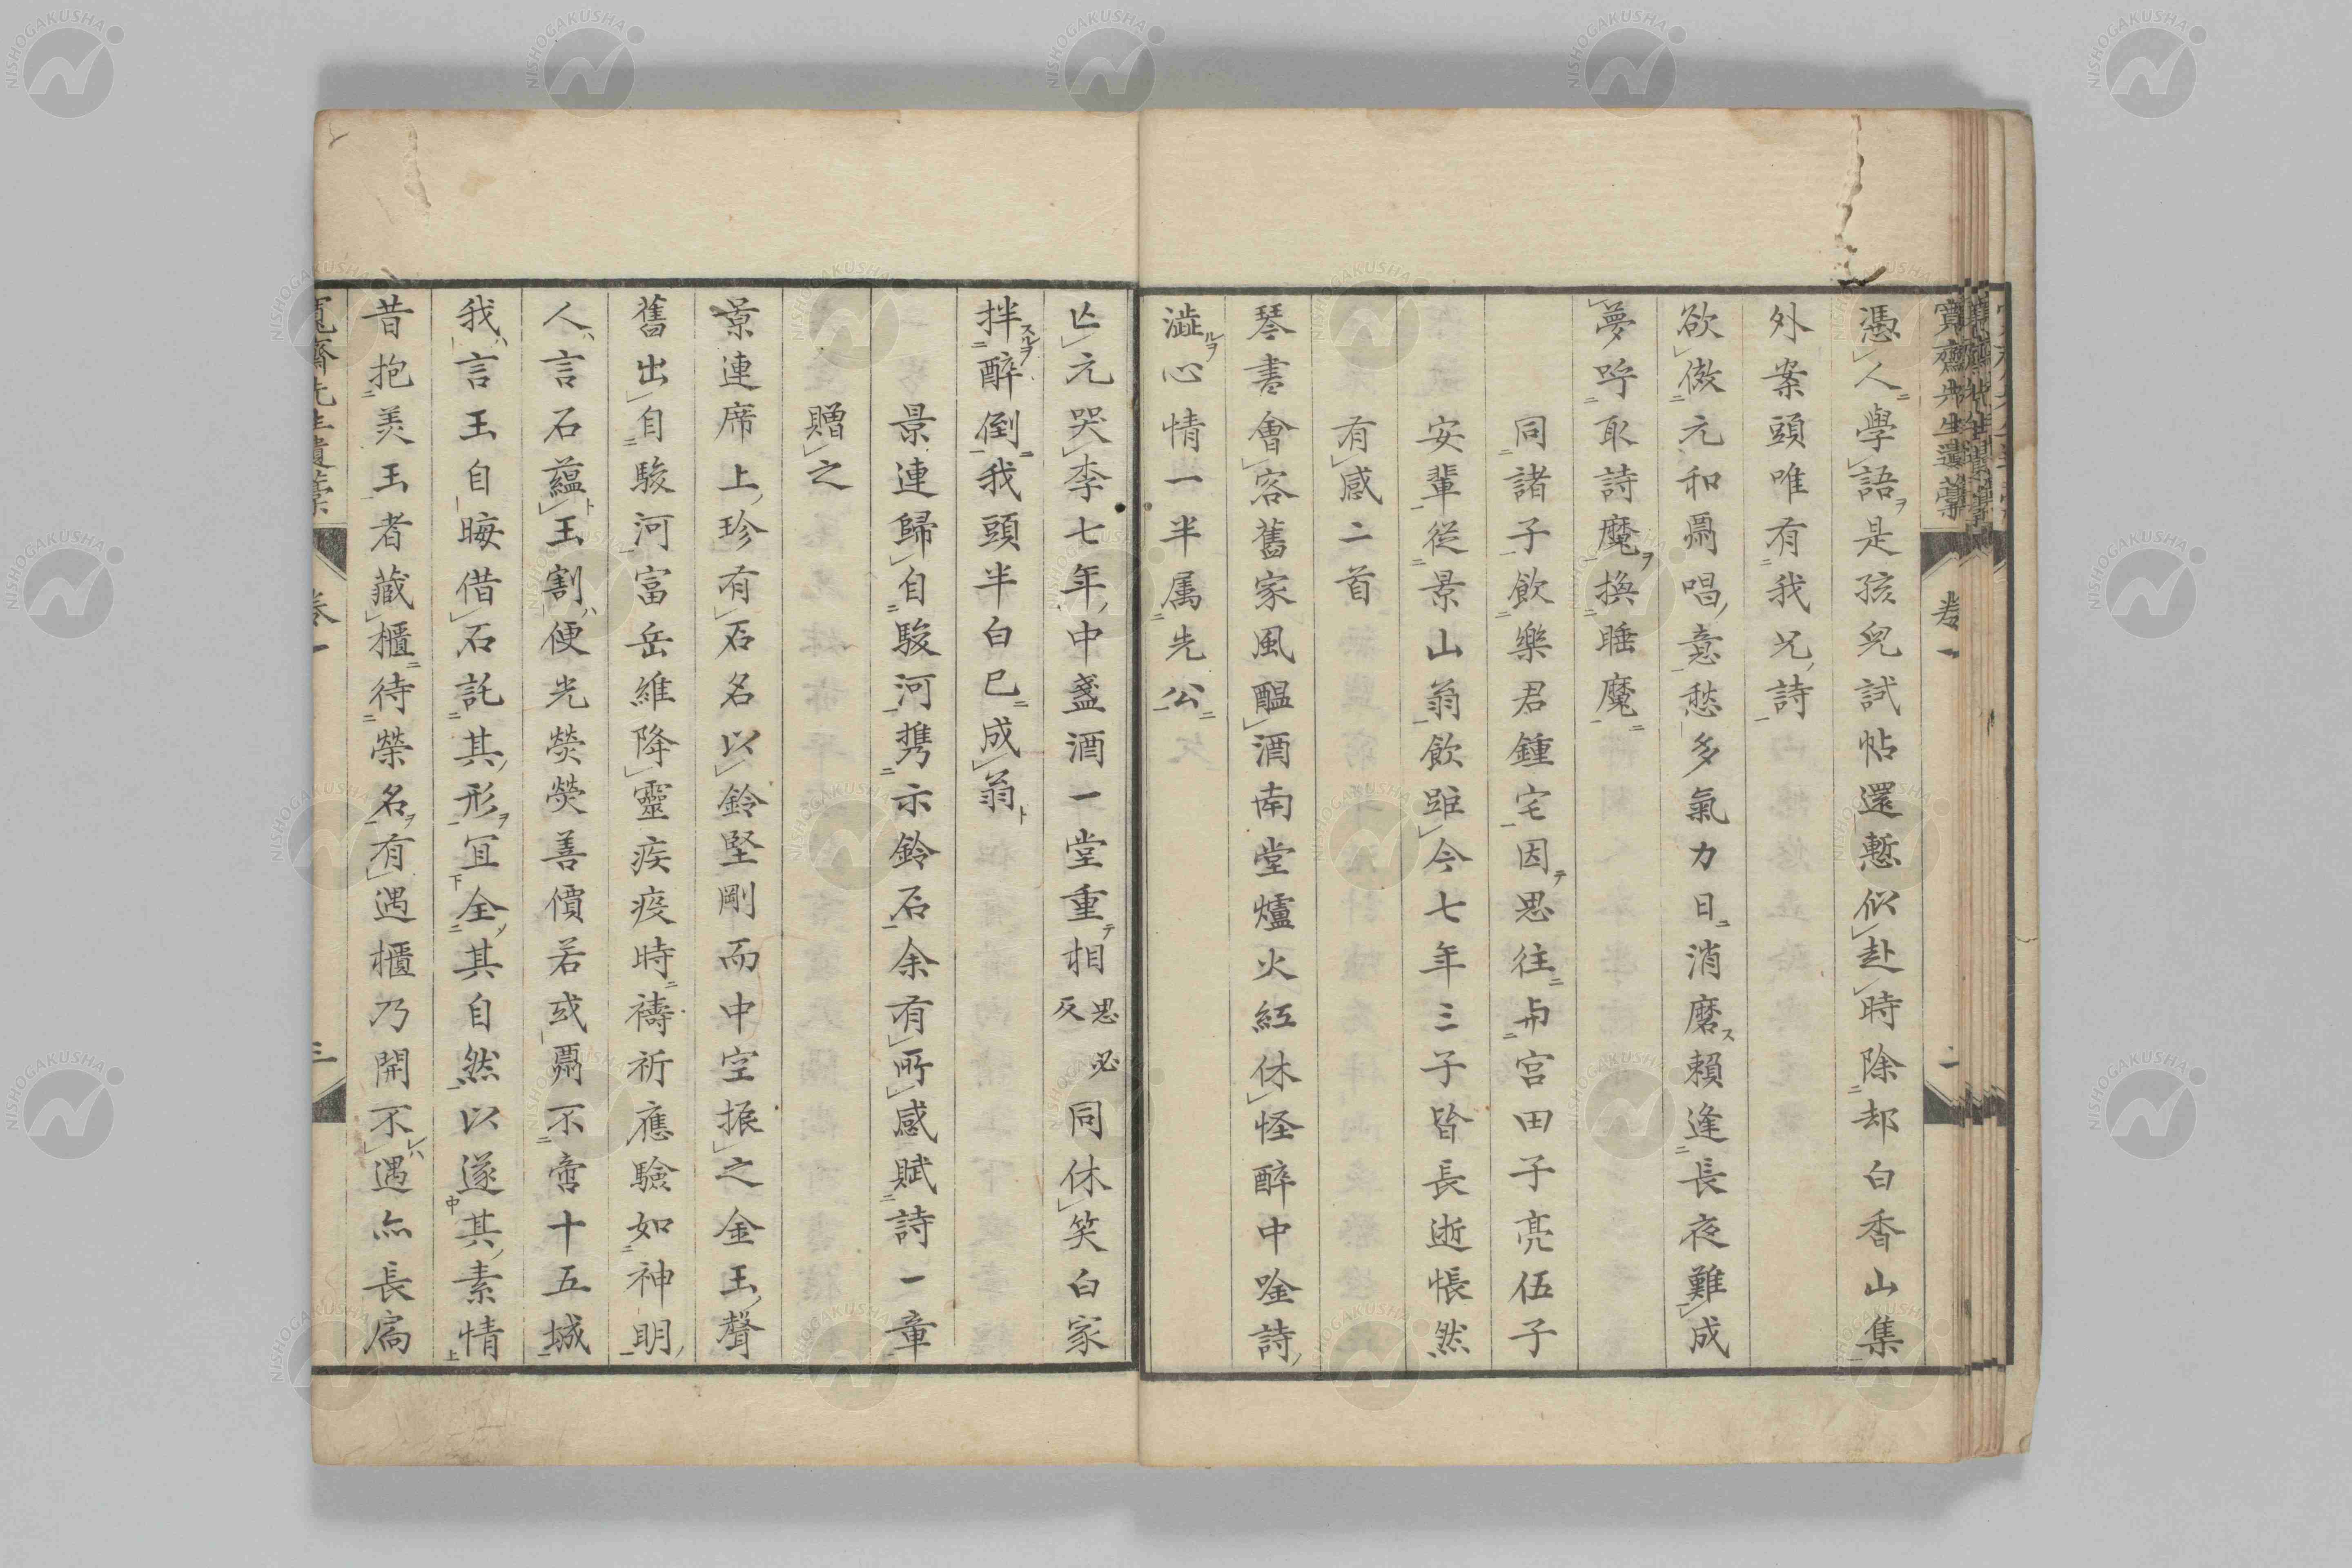 憑人學語是孩兒試帖還慙似赴時除却白香山集
外案頭唯有我兄詩
欲倣元和鬪唱意愁多氣力日消磨賴逢長夜難成
夢呼取詩魔換睡魔
同諸子飲樂君鍾宅因思往与宮田子亮伍子
安輩従景山翁飲距今七年三子皆長逝悵然
有感二首
琴書會客舊家風醖酒南堂爐火紅休怪醉中唫詩
澁心情一半属先公
亾元哭李七年中盞酒一堂重相思必反同休笑白家
拌醉倒我頭半白已成翁
景連歸自駿河携示鈴石余有所感賦詩一章
贈之
景連席上珍有石名以鈴堅剛而中空振之金玉聲
舊出自駿河富岳維降靈疾疫時禱祈應驗如神明
人言石蘊玉割便光熒熒善價若或鬻不啻十五城
我言玉自晦借石託其形宜全其自然以遂其素情
昔抱美玉者藏櫃待榮名有遇櫃乃開不遇亦長扃
寬齋先生遺稾 卷一 三